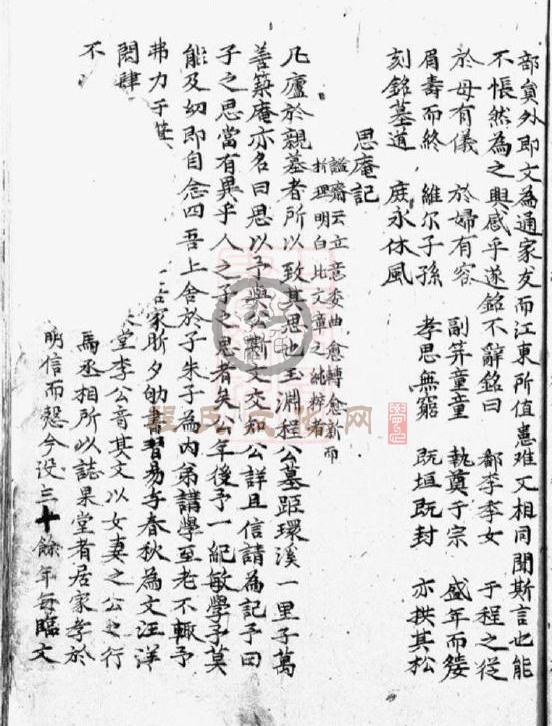 部貟外郎文為通家友而江東所值患难又相同聞斯言也能
不悵然為之興感乎遂銘不辭銘曰 鄱李李女 于程之従
於母有儀 於婦有容 副笄童童 執奠于宗 盛年而嫠
眉壽而終 維尔子孫 孝思無窮 既垣既封 亦拱其松
刻銘墓道 庶永休風
思庵記
謚齋云立意委曲愈轉愈新而
析理明白比文章之
凡廬於親墓者所以致其思也玉淵程公墓距環溪一里子萬
善築庵亦名曰思以予與公斯文交知公詳且信請為記予曰
子之思當有異乎人之子之思者矣公年後予一紀敏學予莫
能及幼即自念四吾上舍於子朱子為内弟講學至老不輟予
弗力于
家昕夕的習易与春秋為文汪洋
閎肆 堂李公竒其文以女妻之公之行
不 馬丞相所以誌果堂者居家孝於
明信而愨今没三十餘年每臨文
程氏文化网